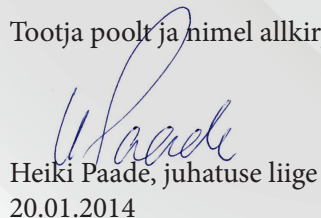 Tootja poolt ja nimel allkir
Paade
Heiki Paade, juhatuse liige
20.01.2014